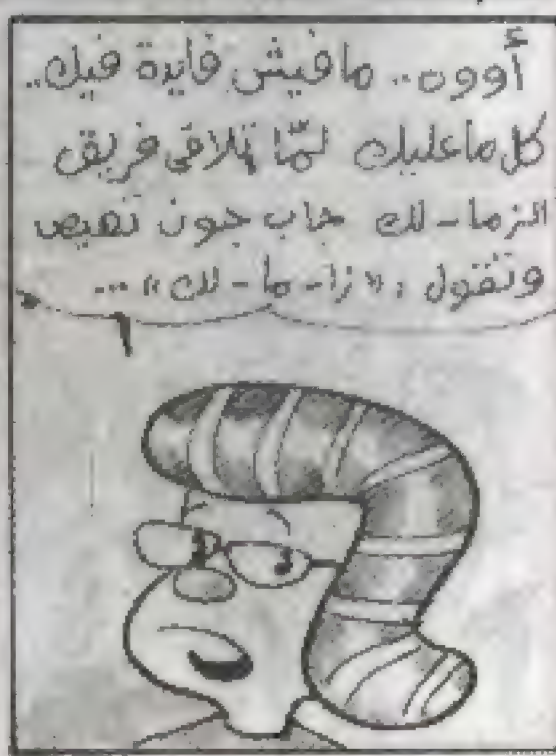 أووه.. مافيش فايدة فيك..
كل ما عليك لمّا تلاقى فريق
الزما-لك جاب جون تهيص
وتقول : «زا-ما-لك» ...